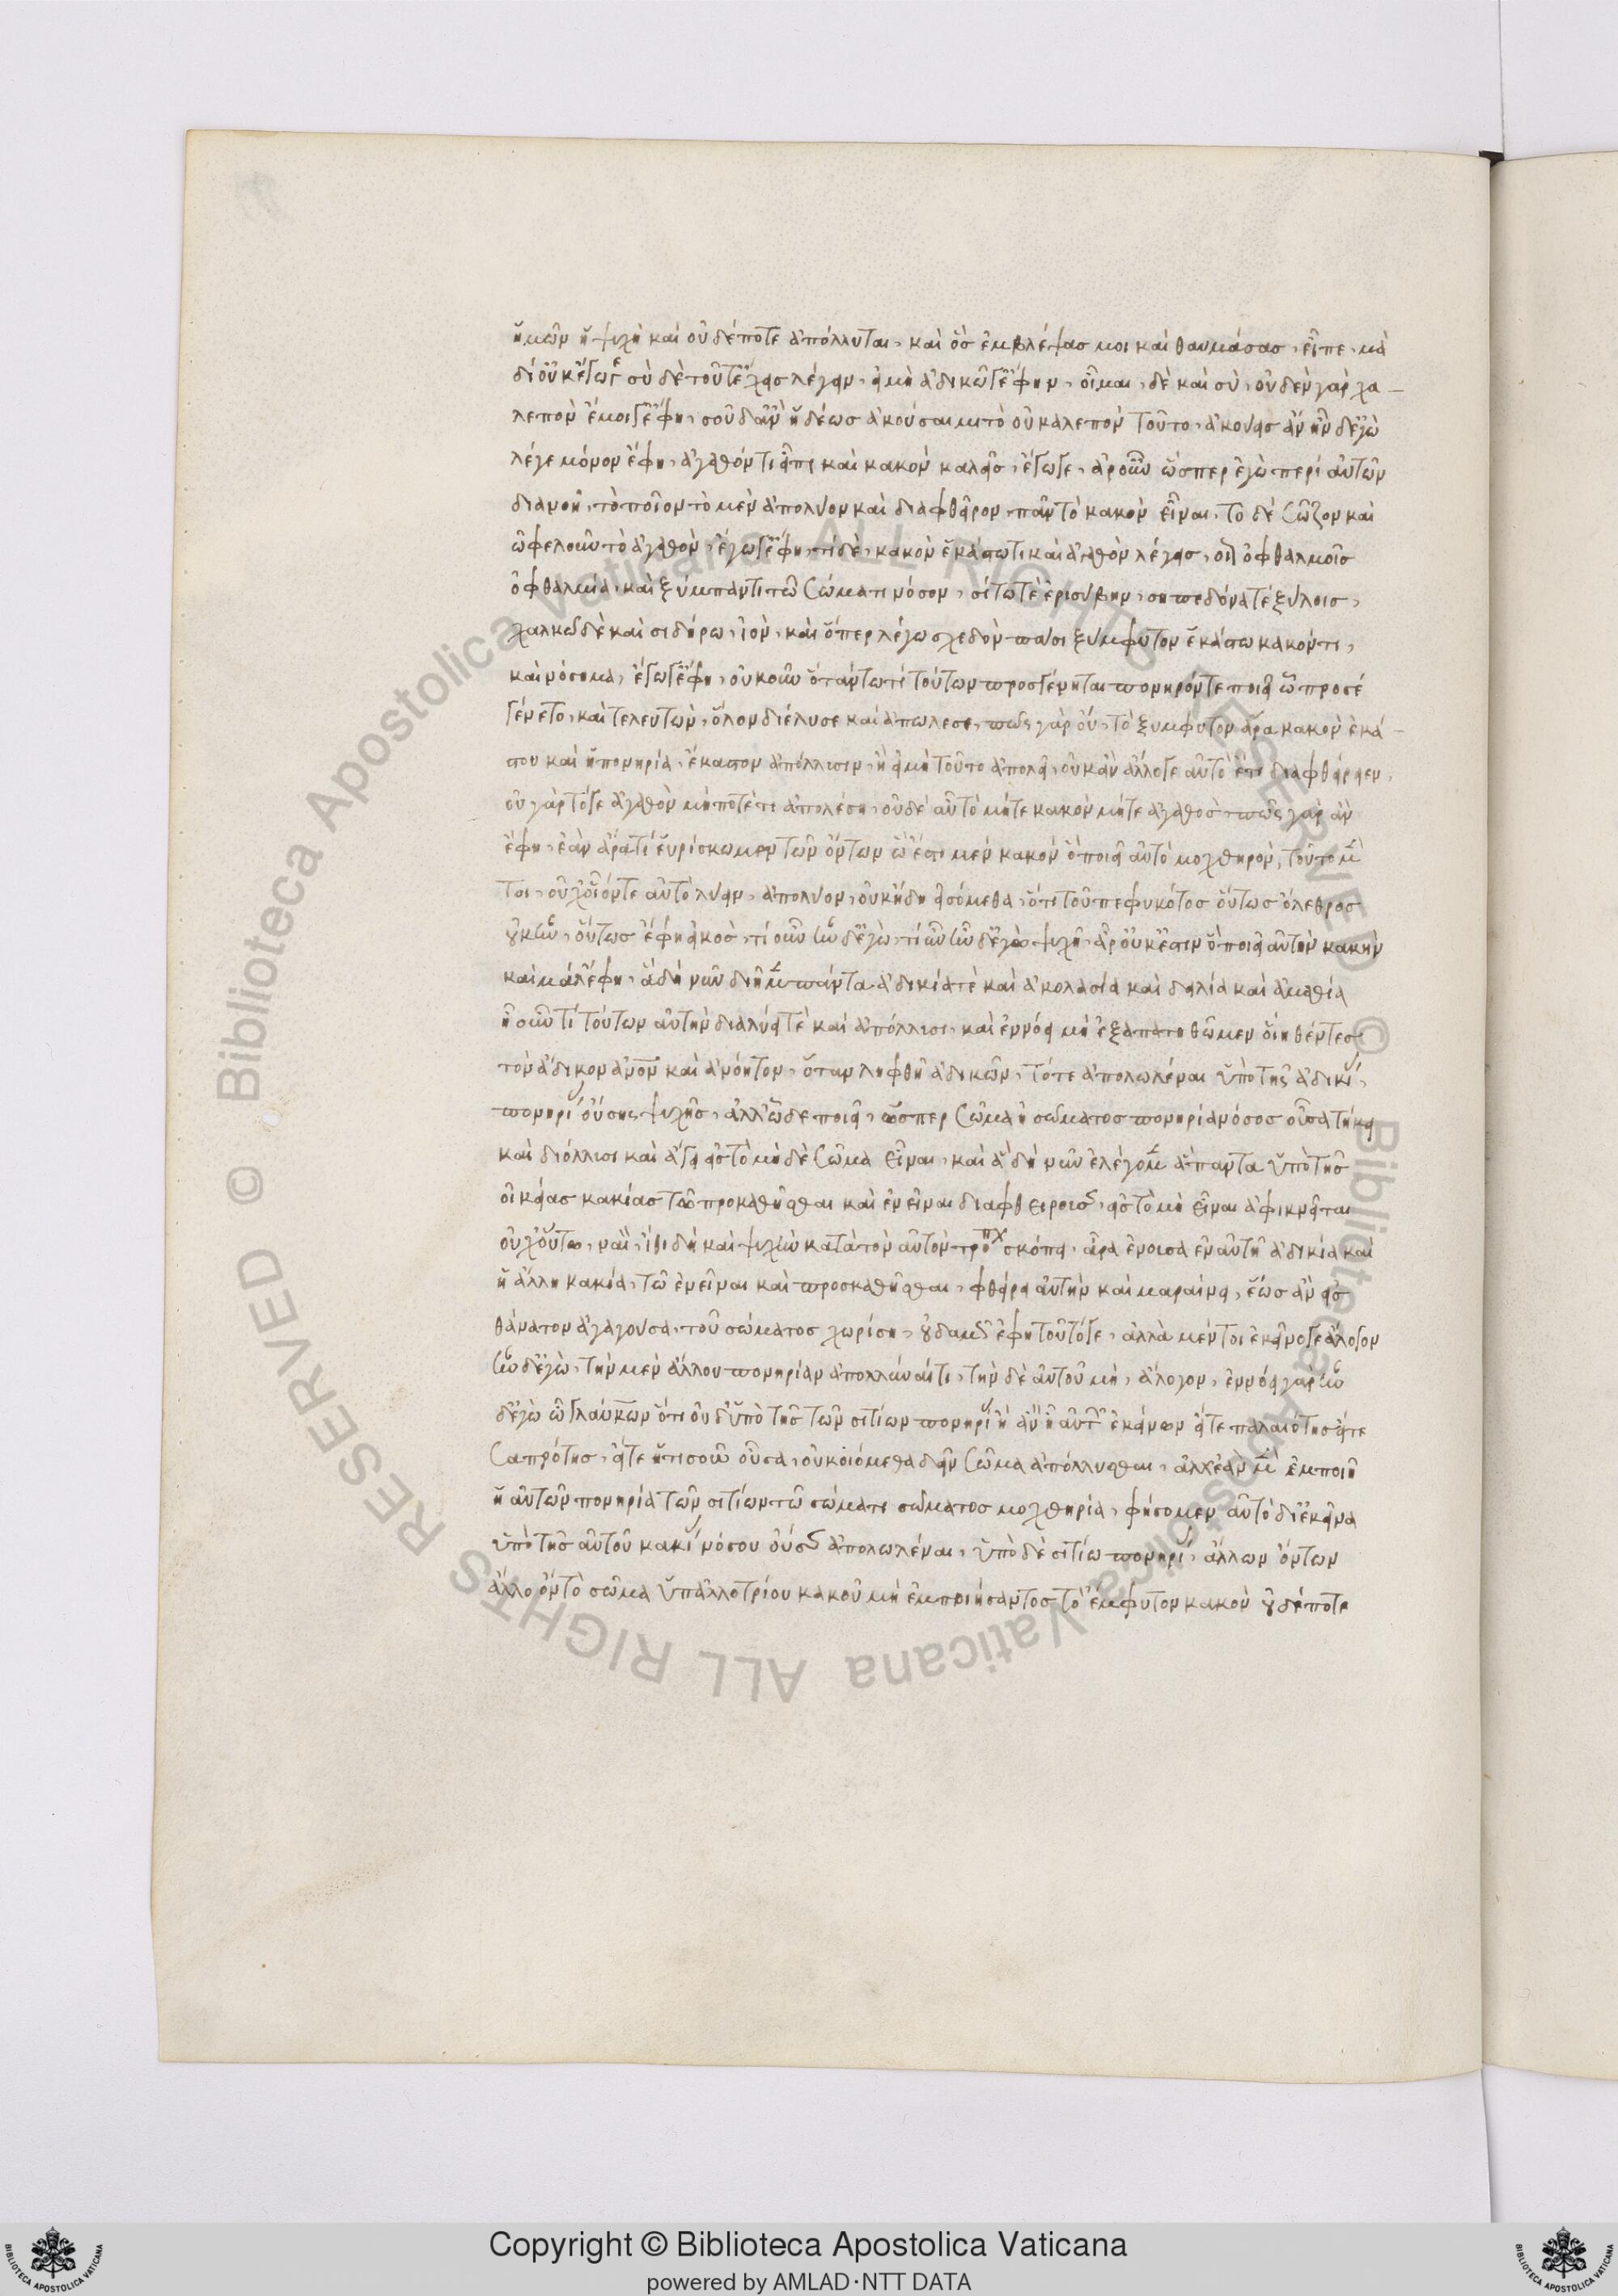 ἡμῶν ἡ ψυχὴ καὶ οὐδέποτε ἀπόλλυται, καὶ ὃς ἐμβλέψας μοι καὶ θαυμάσας, εἶπε, μὰ
δί οὐκ ἔγωγε σὺ δὲ τοῦτ ἔχεις λέγειν, εἰ μὴ ἀδικῶ γ ἔφην, οἶμαι, δὲ καὶ σὺ, οὐδὲν γὰρ χα-
λεπὸν ἔμοιγ ἔφη, σοῦ δ ἂν ἡδέως ἀκούσαιμι τὸ οὐ χαλεπὸν τοῦτο, ἀκούεις ἂν ἦν δ ἐγὼ
λέγε μόνον ἔφη, ἀγαθόν τι εἶπε καὶ κακὸν καλεῖς, ἔγωγε, ἆρ οὖν ὥσπερ ἐγὼ περὶ αὐτῶν
διανοῇ, τὸ ποῖον τὸ μὲν ἀπολύον καὶ διαφθεῖρον πᾶν τὸ κακὸν εἶναι, τὸ δὲ σῶζον καὶ
ὠφελοῦν τὸ ἀγαθὸν, ἔγωγ ἔφη, τί δὲ, κακὸν ἑκάστω τι καὶ ἀγαθὸν λέγεις, οἷον ὀφθαλμοῖς
ὀφθαλμία, καὶ ξύμπαντι τῶ σώματι νόσον, σίτω τὲ ἐρισύβην, σηπεδόνα τὲ ξύλοις,
χαλκῶ δὲ καὶ σιδήρω, ἰὸν, καὶ ὅπερ λέγω σχεδὸν πᾶσι ξύμφυτον ἑκάστω κακόν τι,
καὶ νόσημα, ἔγωγ ἔφη, οὐκοῦν ὅταν τω τὶ τούτων προσγένηται πονηρόν τε ποιεῖ ὧ προσέ
γένετο, καὶ τελευτῶν, ὅλον διέλυσε καὶ ἀπώλεσε, πῶς γὰρ οὔ, τὸ ξύμφυτον ἄρα κακὸν ἑκά-
στου καὶ ἡ πονηρία, ἕκαστον ἀπόλλυσιν, ἢ εἰ μὴ τοῦτο ἀπολεῖ, οὐκ ἂν ἄλλογε αὐτὸ ἔτι διαφθάρειεν,
οὐ γὰρ τόγε ἀγαθὸν μήποτέ τι ἀπολέση, οὐδὲ αὖ τὸ μήτε κακὸν μήτε ἀγαθὸς πῶς γὰρ ἂν
ἔφη, ἐὰν ἄρα τί εὑρίσκωμεν τῶν ὄντων ὧ ἔστι μὲν κακὸν ὃ ποιεῖ αὐτὸ μοχθηρὸν, τοῦτο μέν
τοι, οὐχ οἷόν τε αὐτὸ λύειν, ἀπολύον, οὐκ ἤδη εἰσόμεθα, ὅτι τοῦ πεφυκότος οὕτως ὄλεθρος
οὐκ ἦν, οὕτως ἔφη εἰκὸς, τί οὖν ἦν δ ἐγὼ, τί οὖν ἦν δ ἐγὼ ψυχῆ, ἆρ οὐκ ἔστιν ὃ ποιεῖ αὐτὴν κακὴν
καὶ μάλ ἔφη, ἃ δὴ νῦν διῇμεν πάντα ἀδικία τὲ καὶ ἀκολασία καὶ δειλία καὶ ἀμαθία
ἦ οὖν τὶ τούτων αὐτὴν διαλύει τὲ καὶ ἀπόλλυσι, καὶ ἐννόει μὴ ἐξαπατηθῶμεν οἰηθέντες
τὸν ἄδικον ἄνον καὶ ἀνόητον, ὅταν ληφθῆ ἀδικῶν, τότε ἀπολωλέναι ὑπὸ τῆς ἀδικί,
πονηρί οὔσης ψυχῆς, ἀλλ ὧδε ποιεῖ, ὥσπερ σῶμα ἡ σώματος πονηρία νόσος οὖσα τήκει
καὶ διόλλυσι καὶ ἄγει εἰς τὸ μὴ δὲ σῶμα εἶναι, καὶ ἃ δὴ νῦν ἐλέγομεν ἅπαντα ὑπὸ τῆς
οἰκείας κακίας τῶ προκαθῆσθαι καὶ ἐνεῖναι διαφθειρούσης, εἰς τὸ μὴ εἶναι ἀφικνεῖται
οὐχ οὕτω, ναὶ, ἴθι δὴ καὶ ψυχὴν κατὰ τὸν αὐτὸν τρόπον σκόπει, ἆρα ἐνοῦσα ἐν αὐτῆ ἀδικία καὶ
ἡ ἄλλη κακία, τῶ ἐνεῖναι καὶ προσκαθῆσθαι, φθείρει αὐτὴν καὶ μαραίνει, ἕως ἂν εἰς
θάνατον ἀγαγοῦσα, τοῦ σώματος χωρίση, οὐδαμῶς ἔφη τοῦτόγε, ἀλλὰ μέντοι ἐκεῖνογε ἄλογον
ἦν δ ἐγὼ, τὴν μὲν ἄλλου πονηρίαν ἀπολλύναι τι, τὴν δὲ αὐτοῦ μὴ, ἄλογον, ἐννόει γὰρ ἦν
δ ἐγὼ ὦ γλαύκων ὅτι οὐδ ὑπὸ τῆς τῶν σιτίων πονηρί ἣ ἂν ᾖ αὐτ ἐκείνων εἴτε παλαιότης εἴτε
σαπρότης, εἴτε ἡτισοῦν οὖσα, οὐκ οἰόμεθα δεῖν σῶμα ἀπόλλυσθαι, ἀλλ ἐὰν μὲν ἐμποιῆ
ἡ αὐτῶν πονηρία τῶν σιτίων τῶ σώματι σώματος μοχθηρία, φήσομεν αὐτὸ δι ἐκεῖνα
ὑπὸ τῆς αὑτοῦ κακί νόσου οὔσης ἀπολωλέναι, ὑπὸ δὲ σιτίω πονηρί, ἄλλων ὄντων
ἄλλο ὂν τὸ σῶμα ὑπ ἀλλοτρίου κακοῦ μὴ ἐμποιήσαντος τὸ ἔμφυτον κακὸν οὐδέποτε
© Biblioteca Apostolica Vaticana ALL RIGHTS RESERVED
© Biblioteca Apostolica Vaticana ALL RIGHTS RESERVED
Copyright © Biblioteca Apostolica Vaticana
powered by AMLAD·NTT DATA